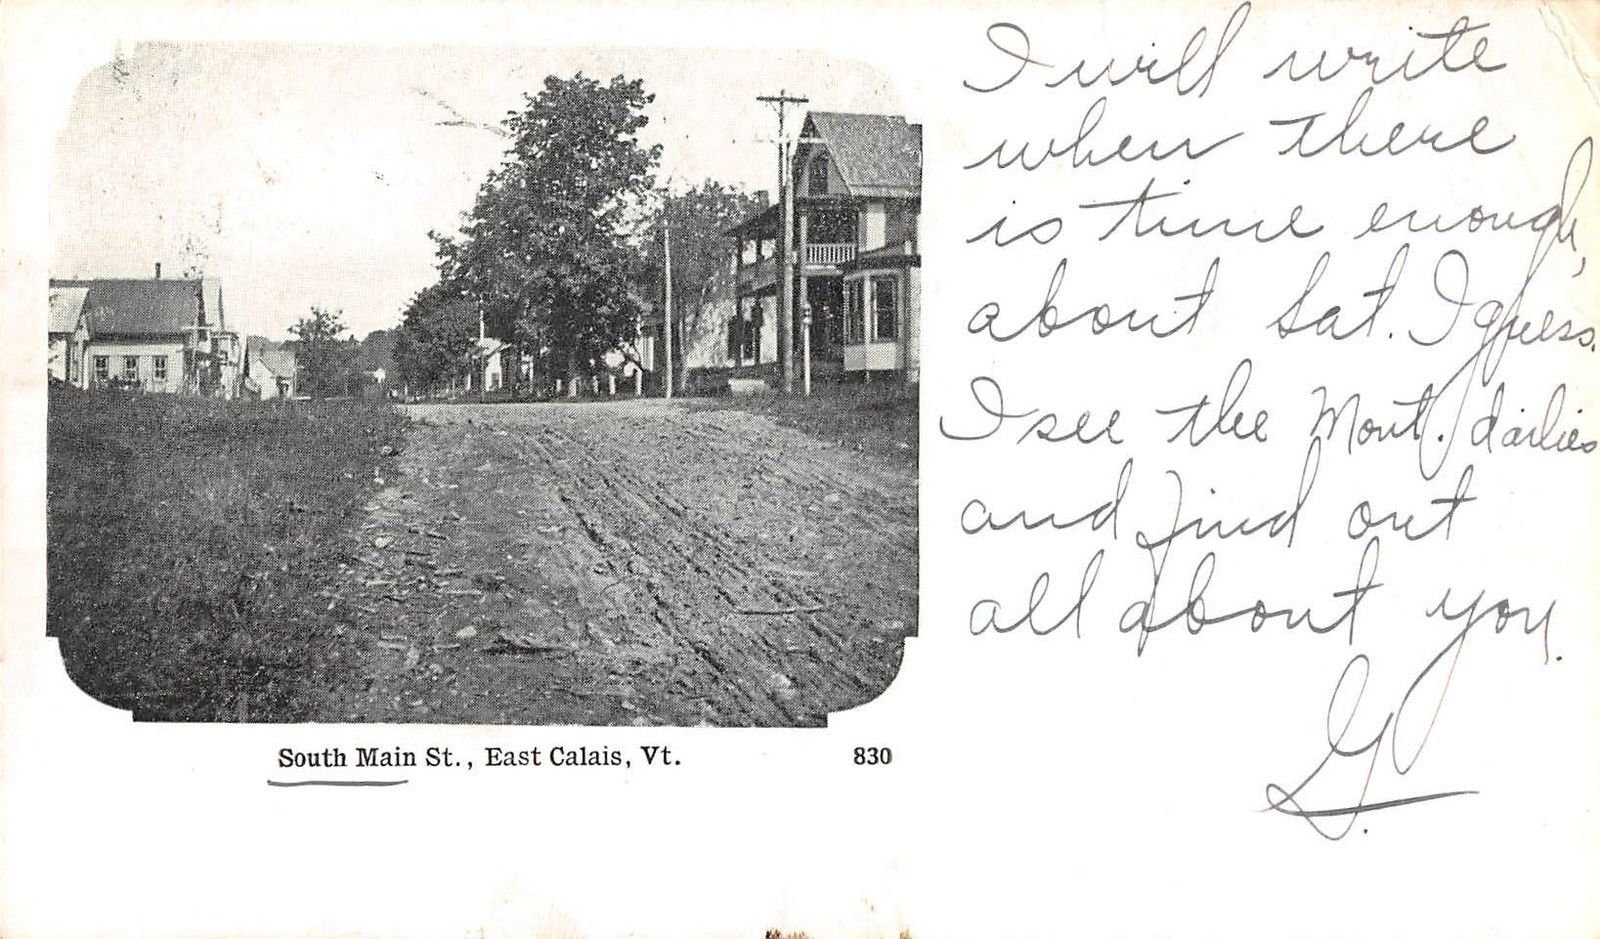 I will write
when there
is time enough,
about Sat. I guess.
I see the Mont. dailies
and find out
all about you.
G.
South Main St., East Calais, Vt.
830